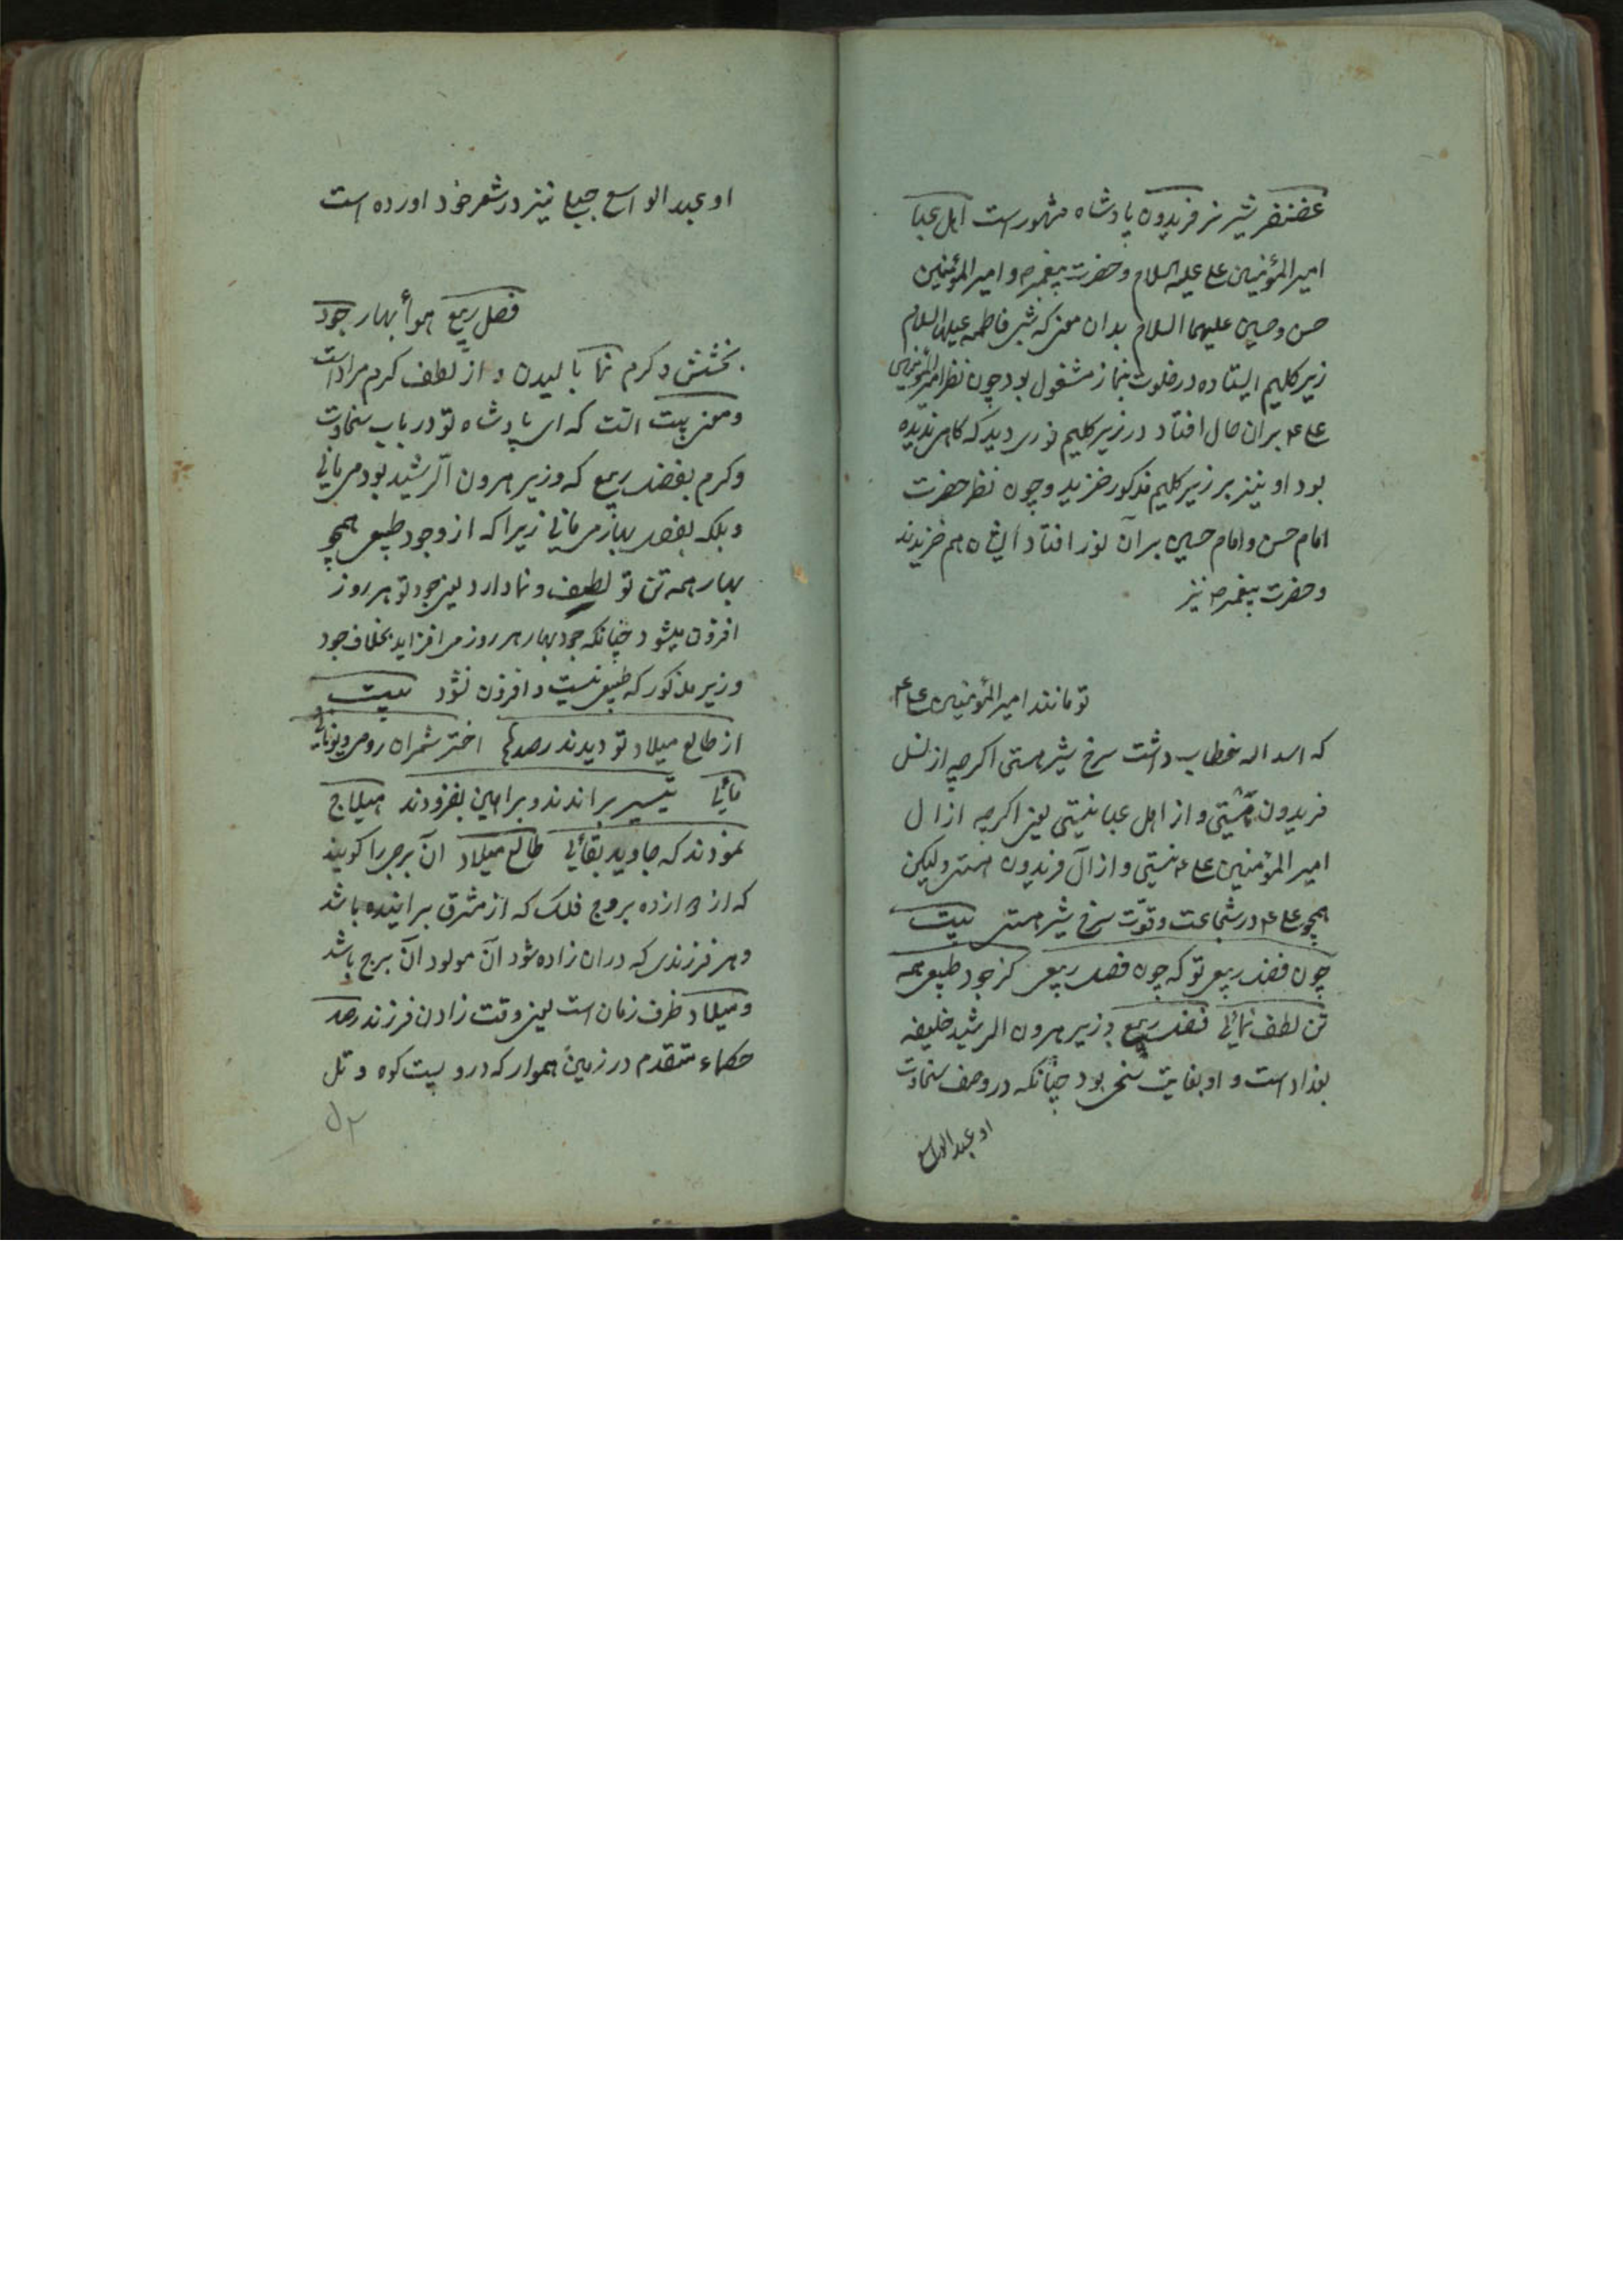 غضنفر شیر نر فریدون پادشاه مشهور است اهل عبا
امیر المؤمنین علی علیه السلام و حضرت پیغمبر ص و امیر المؤمنین
حسن و حسین علیهما السلام بدان معنی که شبی فاطمه علیها السلام
زیر کلیم ایستاده در خلوت بنماز مشغول بود چون نظر امیر المؤمنین
علی ع بران حال افتاد در زیر کلیم نوری دید که کاهی ندیده
بود او نیز بر زیر کلیم مذکور خزید و چون نظر حضرت
امام حسن و امام حسین بر آن نور افتاد ایشان هم خزیدند
و حضرت پیغمبر ص نیز
تو مانند امیر المؤمنین علی ع
که اسد اله خطاب داشت سرخ شیر هستی اکرچه از نسل
فریدون هستی و از اهل عبا نیستی یعنی اکرچه از ال
امیر المؤمنین علی ع نیستی و از آل فریدون هستی ولیکن
همچو علی ع در شجاعت و قوّت سرخ شیر هستی بیت
چون فضل ربیعی تو که چون فصل ربیعی کز جود طبیعی همه
تن لطف نمائی فضل ربیع وزیر هرون الرشید خلیفه
بغداد است و او بغایت سخی بود چنانکه در وصف سخاوت
او عبد الواسع
او عبد الواسع جبلی نیز در شعر خود اورده است
فصل ربیع هوأ بهار جود
بخشش و کرم نما بالیدن و از لطف کرم مراد است
و معنی بیت انست که ای پادشاه تو در باب سخاوت
و کرم بفضل ربیع که وزیر هرون الرشید بود می مانی
و بلکه بفصل بهار می مانی زیرا که از وجود طبیعی همچو
بهار همه تن تو لطیف و نما دارد یعنی جود تو هر روز
افزون میشود چنانکه جود بهار هر روز می افزاید بخلاف جود
وزیر مذکور که طبیعی نیست و افزون نشود بیت
از طالع میلاد تو دیدند رصدها اختر شمران رومی و یونانی
مائی تیسیر براندند و براهین بفزودند هیلاج
نمودند که جاوید بقائی طالع میلاد آن برج را کویند
که از دوازده بروج فلک که از مشرق براینده باشد
و هر فرزندی که دران زاده شود آن مولود آن برج باشد
و میلاد ظرف زمان است یعنی وقت زادن فرزند رصد
حکماء متقدم در زمین هموار که درو پست کوه و تل